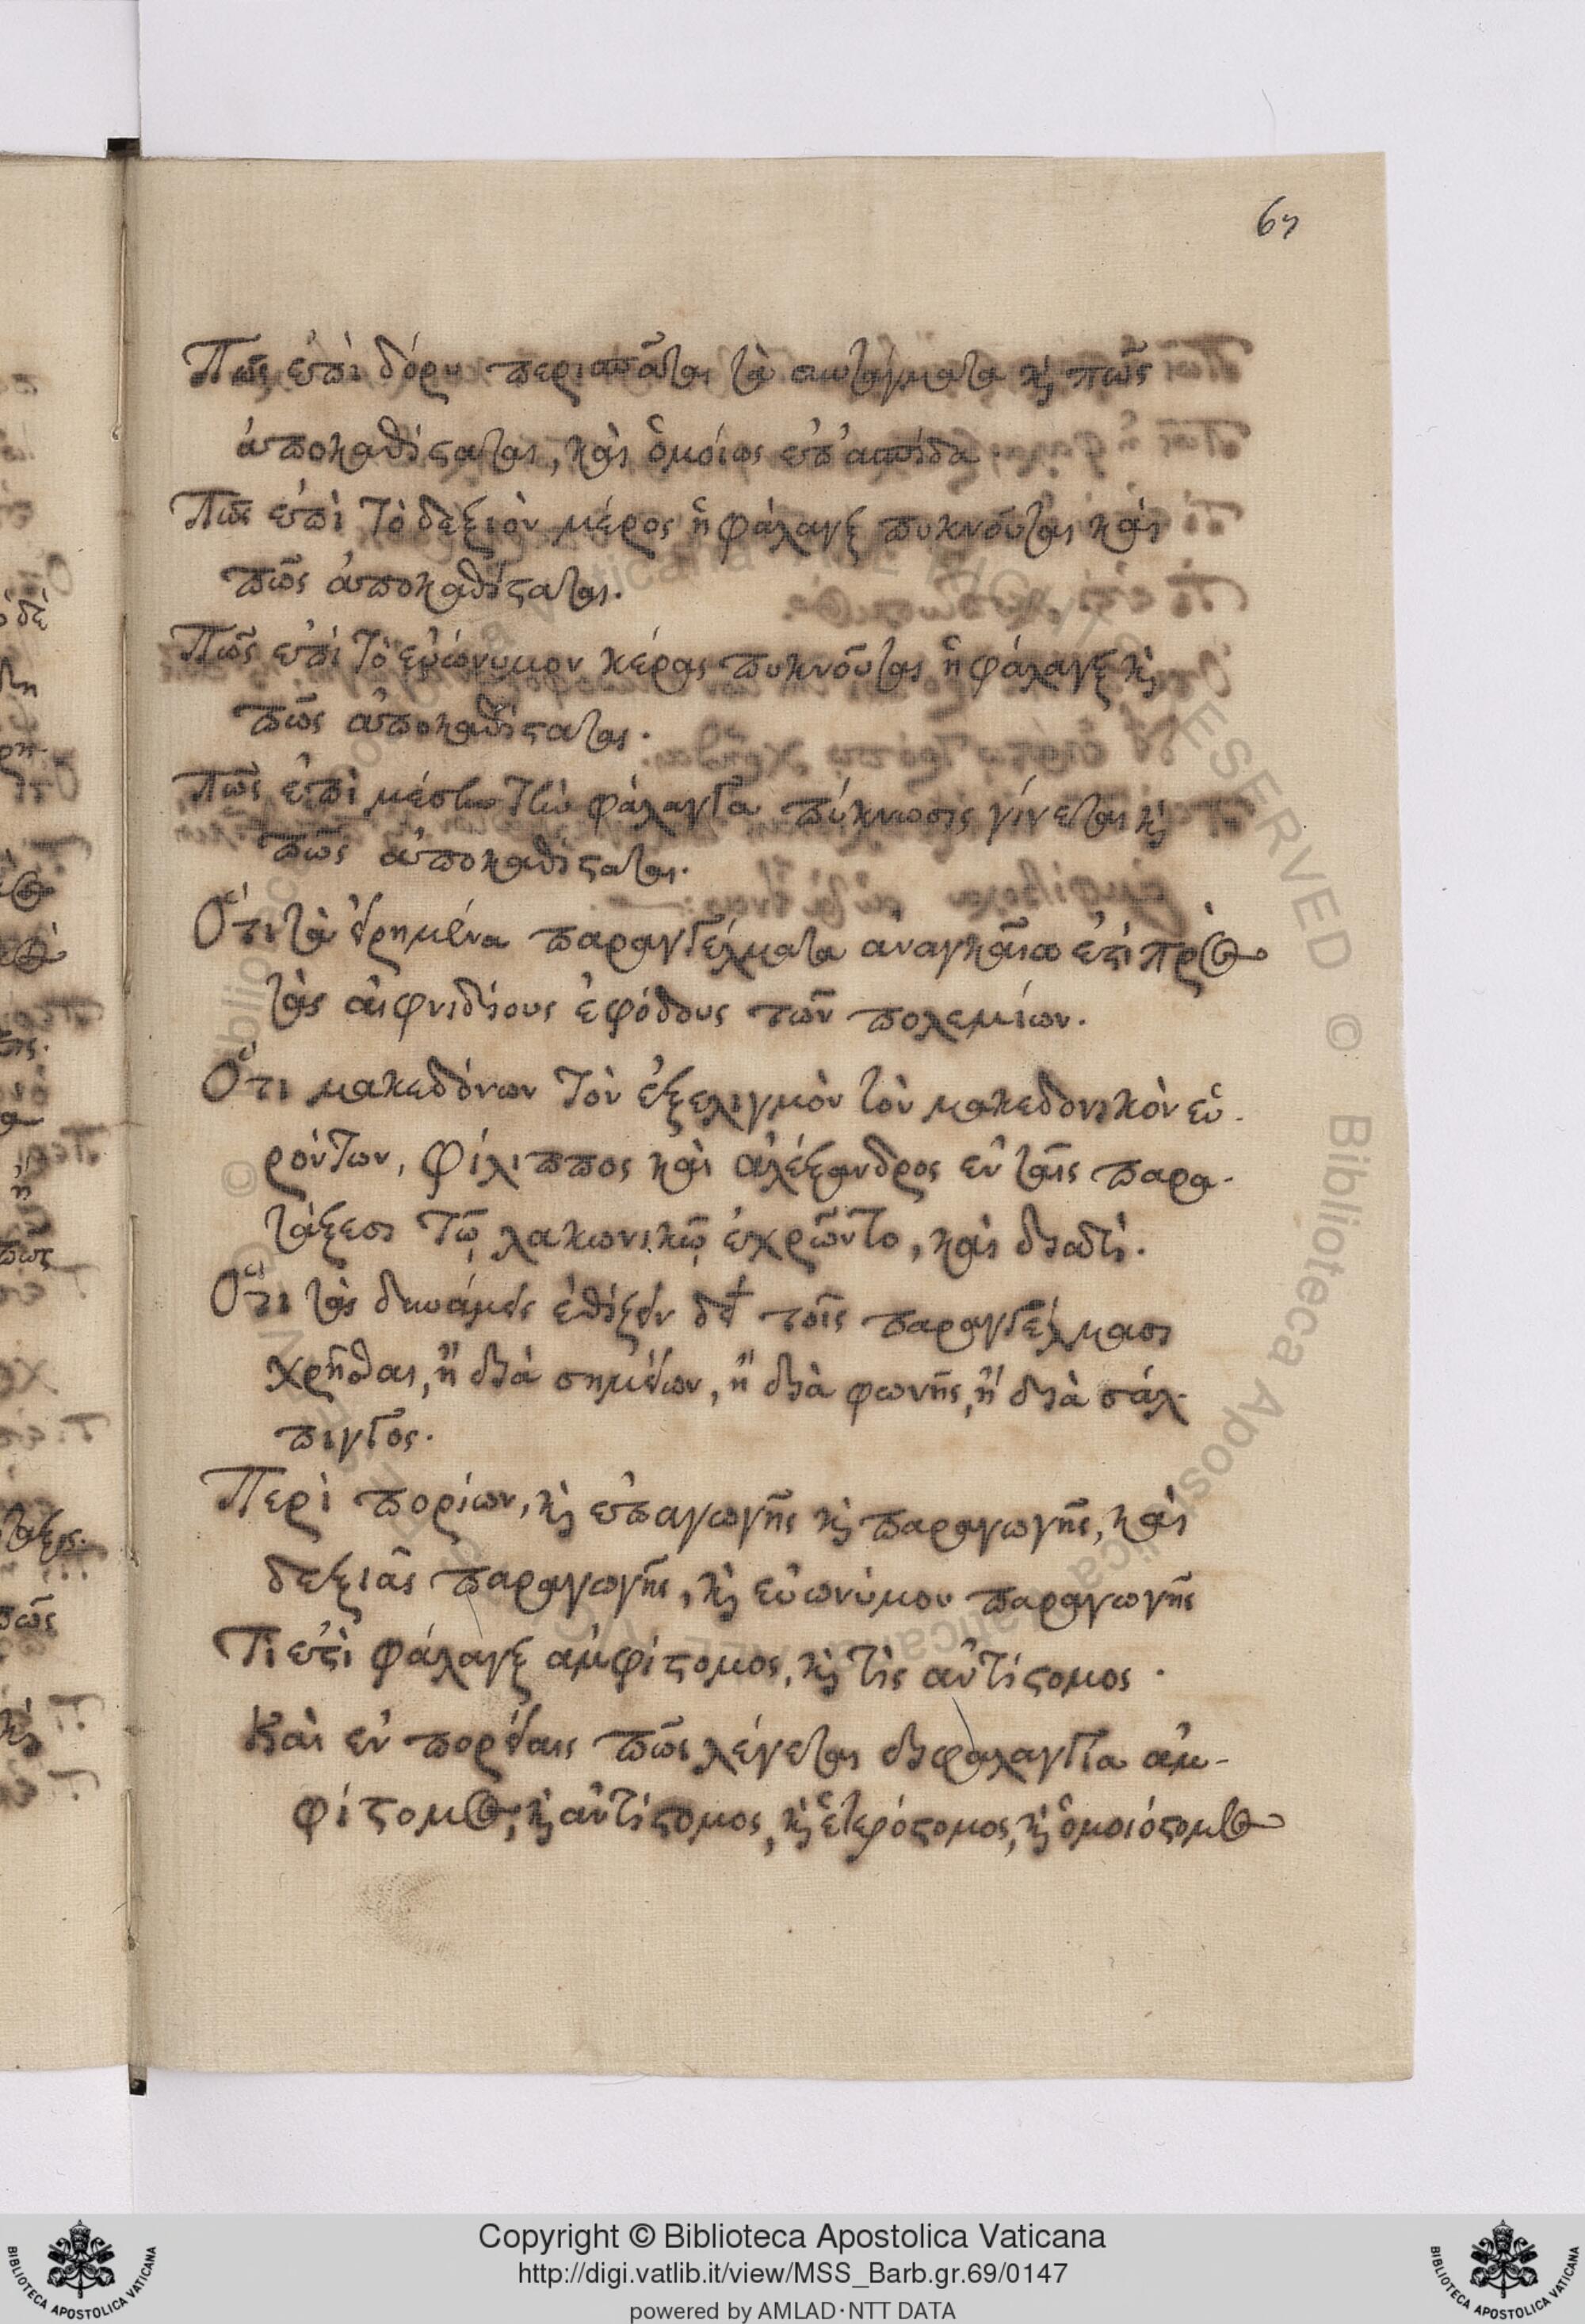 67
Πῶς ἐπὶ δόρυ περισπᾶται τὰ συντάγματα κὶ πῶς
ἀποκαθίσταται, καὶ ὁμοίως ἐπ' ἀσπίδα
Πῶς ἐπὶ τὸ δεξιὸν μέρος ἡ φάλαγξ πυκνοῦται καὶ
πῶς ἀποκαθίσταται.
Πῶς ἐπὶ τὸ εὐώνυμον κέρας πυκνοῦται ἡ φάλαγξ κὶ
πῶς ἀποκαθίσταται.
Πῶς ἐπὶ μέσην τὴν φάλαγγα πύκνωσις γίνεται κὶ
πῶς ἀποκαθίσταται.
Ὅτι τὰ εἰρημένα παραγγέλματα ἀναγκαῖα ἐστὶ πρὸς
τὰς αἰφνιδίους ἐφόδους τῶν πολεμίων.
Ὅτι μακεδόνων τὸν ἐξελιγμὸν τὸν μακεδονικὸν εὑ-
ρόντων, Φίλιππος καὶ ἀλέξανδρος ἐν ταῖς παρα-
τάξεσι τῷ λακωνικῷ ἐχρῶντο, καὶ διατί.
Ὅτι τὰς δυνάμεις ἐθίζειν δεῖ τοῖς παραγγέλμασι
χρῆσθαι, ἢ διὰ σημείων, ἢ διὰ φωνῆς, ἢ διὰ σάλ-
πιγγος.
Περὶ πορίων, κὶ ἐπαγωγῆς κὶ παραγωγῆς, καὶ
δεξιᾶς παραγωγῆς, κὶ εὐωνύμου παραγωγῆς
Τί ἐστὶ φάλαγξ ἀμφίστομος, κὶ τίς ἀντίστομος.
Καὶ ἐν πορείαις πῶς λέγεται διφαλαγγία ἀμ-
φίστομος, κὶ ἀντίστομος, κὶ ἑτερόστομος, κὶ ὁμοιόστομος
Copyright © Biblioteca Apostolica Vaticana
http://digi.vatlib.it/view/MSS_Barb.gr.69/0147
powered by AMLAD·NTT DATA
BIBLIOTECA APOSTOLICA VATICANA
BIBLIOTECA APOSTOLICA VATICANA